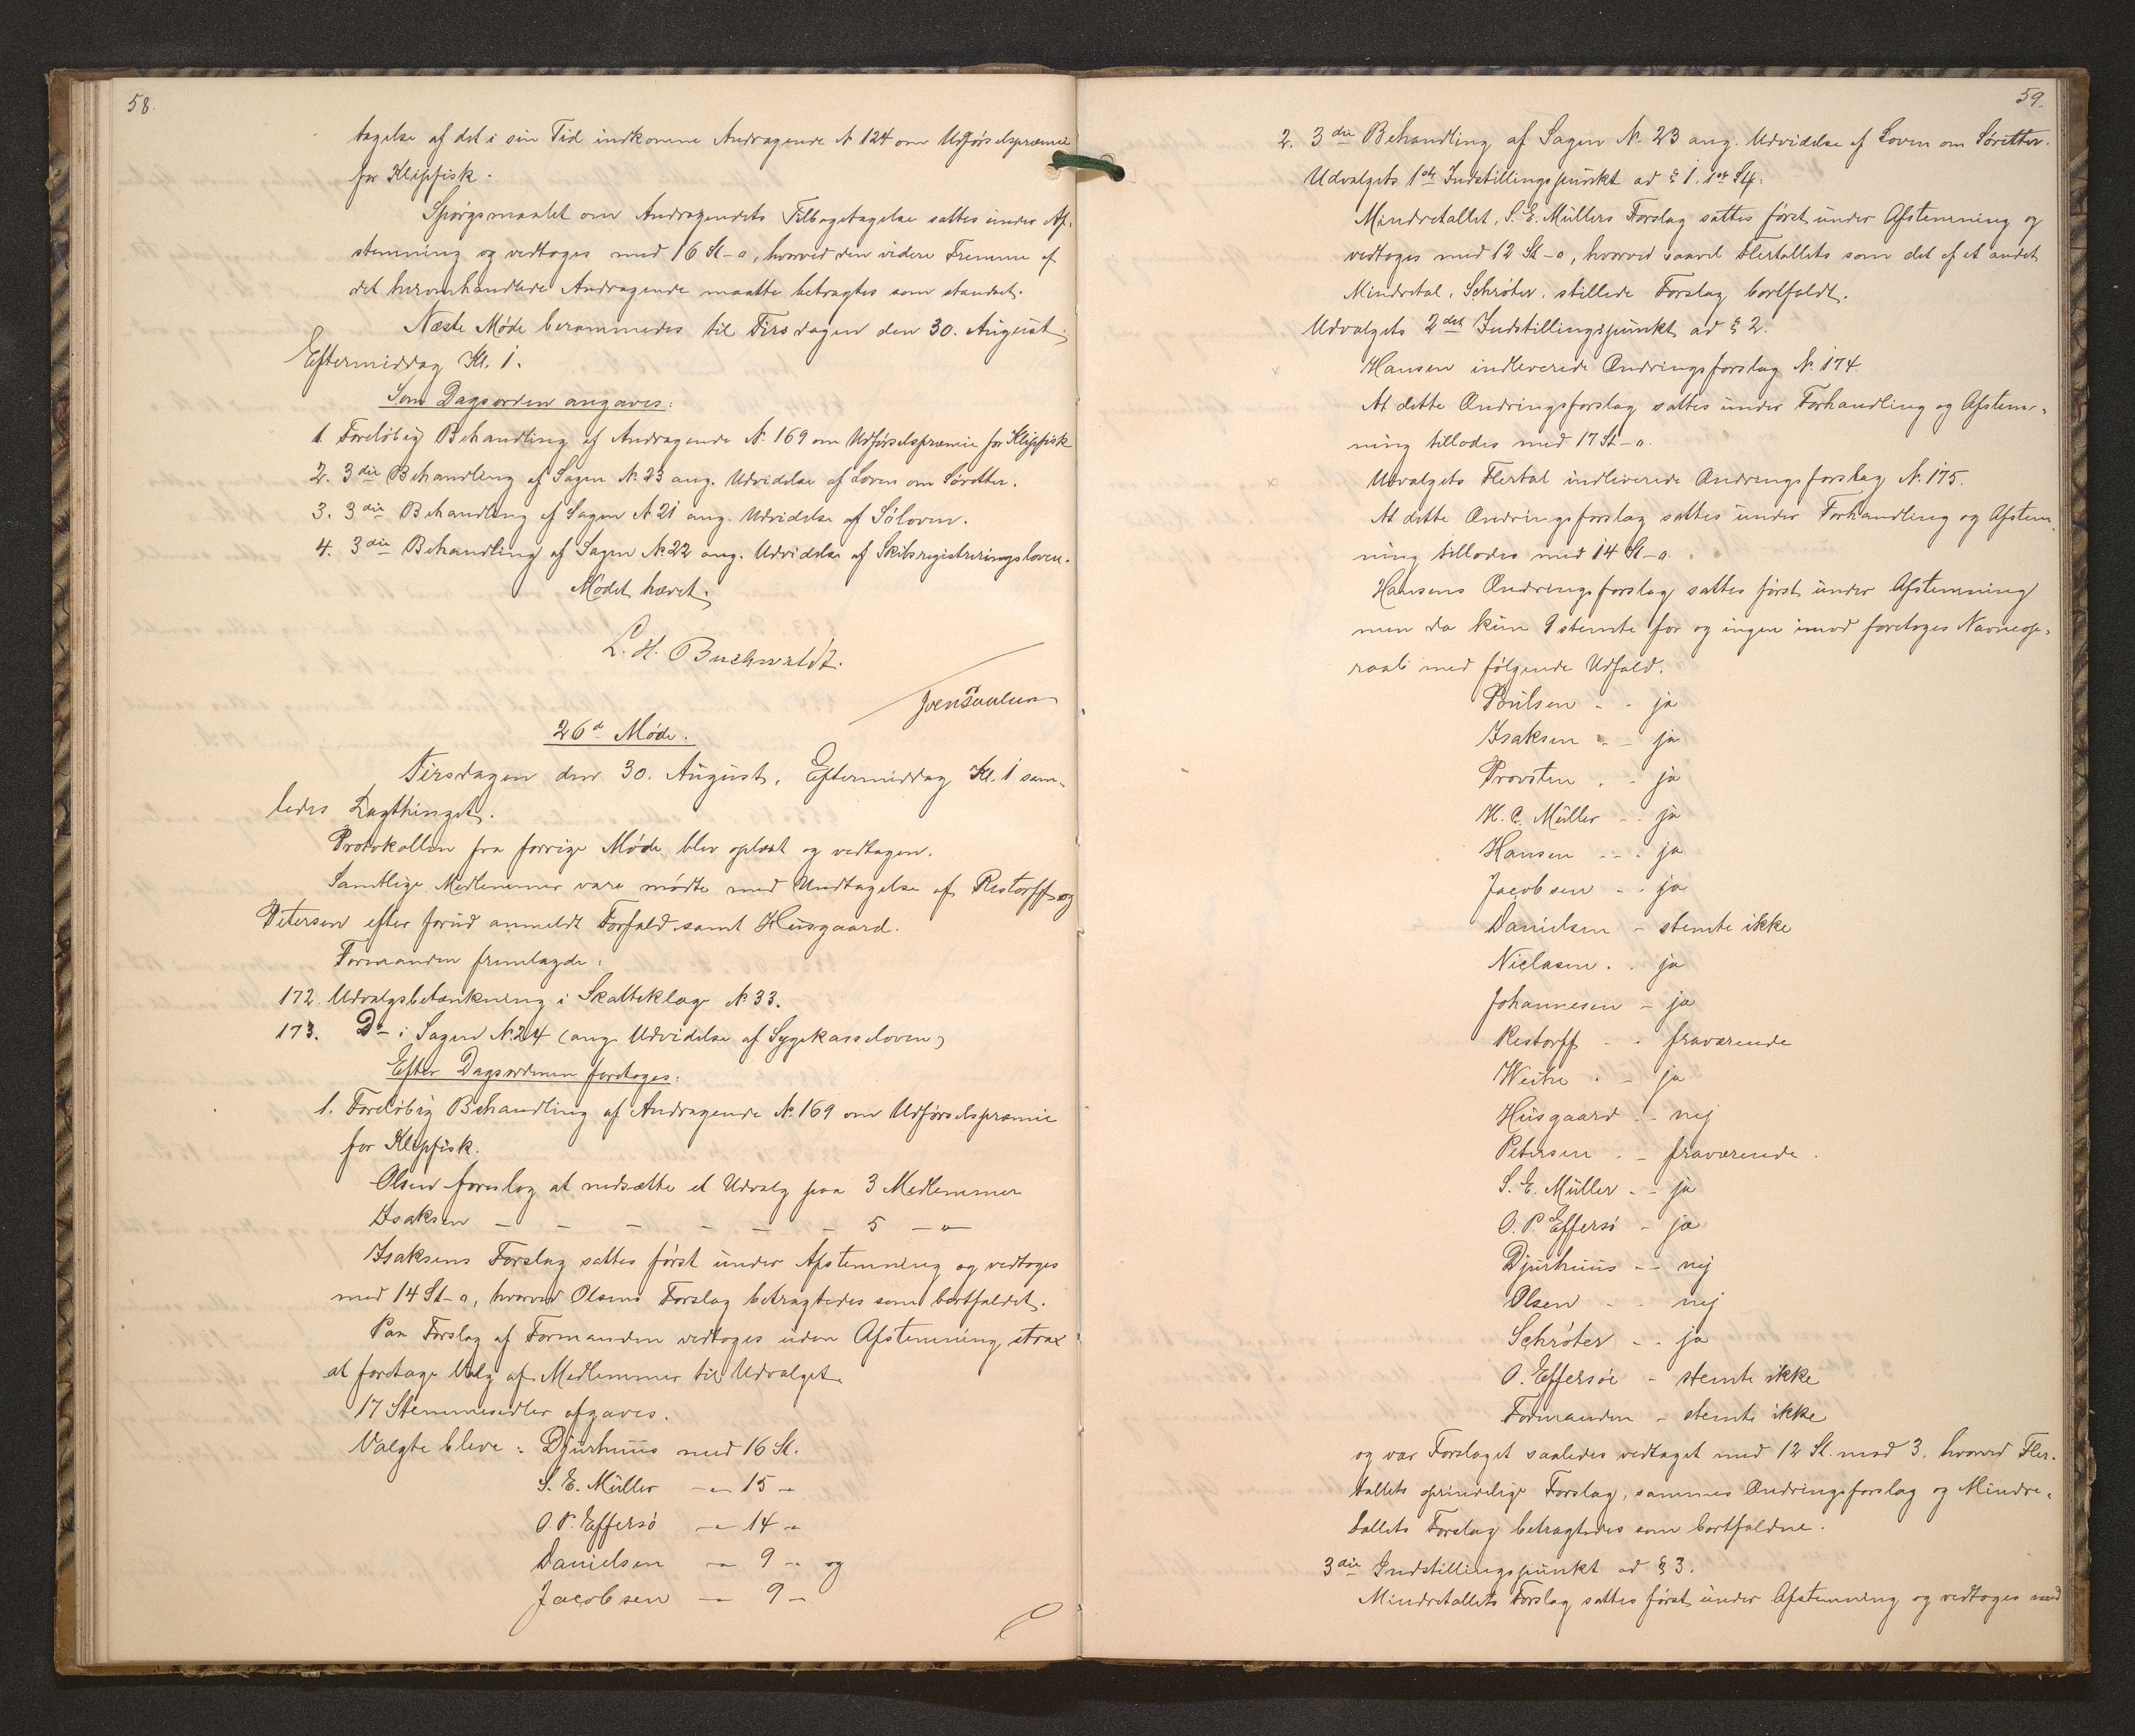 58.
tagelse af det i sin Tid indkomne Andragende N 124 om Udførselspræmie
for Klipfisk.
Spørgsmaalet om Andragendets Tilbagetagelse sattes under Af-
stemning og vedtoges med 16 St-0, hvorved den videre Fremme af
det heromhandlede Andragende maatte betragtes som standset.
Næste Møde berammedes til Tirsdagen den 30. August,
Eftermiddag Kl. 1.
Som Dagsorden angaves:
1. Foreløbig Behandling af Andragende N. 169 om Udførselspræmie for Klipfisk
2. 3die Behandling af Sagen N. 23 ang. Udvidelse af Loven om Søretter.
3. 3die Behandling af Sagen N 21 ang. Udvidelse af Søloven.
4. 3die Behandling af Sagen N. 22 ang. Udvidelse af Skibsregistreringsloven.
Mødet hævet.
L. H. Buchwaldt.
26d Møde.
Tirsdagen den 30. August, Eftermiddag Kl. 1 sam-
ledes Lagthinget.
Protokollen fra forrige Møde blev oplæst og vedtagen.
Samtlige Medlemmer vare mødte med Undtagelse af Restorff og
Petersen efter forud anmeldt Forfald samt Husgaard.
Formanden fremlagde:
172. Udvalgsbetænkning i Skatteklage N. 33.
173. Do i Sagen N. 24 (ang. Udvidelse af Sygekasseloven)
Efter Dagsordenen foretoges:
1. Foreløbig Behandling af Andragende N. 169 om Udførselspræmie
for Klipfisk.
Olsen foreslog at nedsætte et Udvalg paa 3 Medlemmer
Isaksen — — — — — — 5 — " —
Isaksens Forslag sattes først under Afstemning og vedtoges
med 14 St-0, hvorved Olsens Forslag betragtedes som bortfaldet.
Paa Forslag af Formanden vedtoges uden Afstemning strax
at foretage Valg af Medlemmer til Udvalget.
17 Stemmesedler afgaves.
Valgte bleve: Djurhuus med 16 St.
S. E. Müller — " — 15 - "
O. P. Effersø — " — 14 - "
Danielsen — " — 9 - " og
Jacobsen — " — 9 -
59.
2. 3die Behandling af Sagen N. 23 ang. Udvidelse af Loven om Søretter.
Udvalgets 1ste Indstillingspunkt ad § 1, 1ste St.
Mindretallet, S. E. Müllers Forslag sattes først under Afstemning og
vedtoges med 12 St-0, hvorved saavel Flertallets som det af et andet
Mindretal, Schrøter, stillede Forslag bortfaldt.
Udvalgets 2det Indstillingspunkt ad § 2.
x Hansen indleverede Ændringsforslag N. 174.
At dette Ændringsforslag sattes under Forhandling og Afstem-
ning tillodes med 17 St-0.
x Udvalgets Flertal indleverede Ændringsforslag N. 175.
At dette Ændringsforslag sattes under Forhandling og Afstem-
ning tillodes med 14 St-0.
Hansens Ændringsforslag sattes først under Afstemning
men da kun 9 stemte for og ingen imod foretoges Navneop-
raab med følgende Udfald.
Poulsen - - ja
Isaksen - - ja
Provsten - - ja
H. C. Müller - - ja
Hansen - - - ja
Jacobsen - - ja
Danielsen - stemte ikke
Niclasen - - ja
Johannesen - ja
Restorff - - fraværende
Weihe - - ja
Husgaard - - nej
Petersen - - fraværende.
S. E. Müller - - ja
O. P. Effersø - ja
Djurhuus - - nej
Olsen - - nej
Schrøter - - ja
O. Effersøe - stemte ikke
Formanden - stemte ikke
og var Forslaget saaledes vedtaget med 12 St. mod 3, hvorved Fler-
tallets oprindelige Forslag, sammes Ændringsforslag og Mindre-
tallets Forslag betragtedes som bortfaldne.
3die Indstillingspunkt ad § 3.
Mindretallets Forslag sattes først under Afstemning og vedtoges med